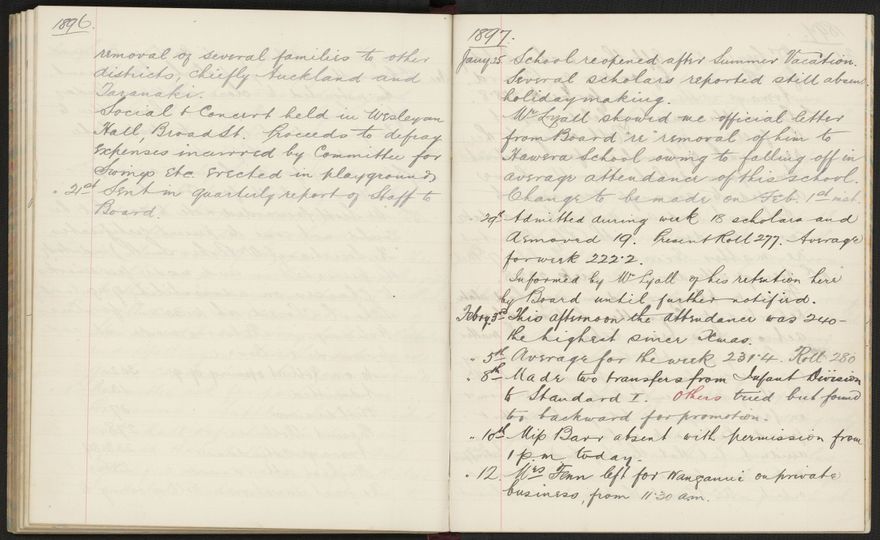 1896.
removal of several families to other
districts, chiefly Auckland and
Taranaki.
Social & Concert held in Wesleyan
Hall, Broad St. Proceeds to defray
expenses incurred by Committee for
Swings etc erected in playground
" 21st Sent in quarterly report of Staff to
Board.
1897.
Jany 25 School reopened after Summer Vacation.
Several scholars reported still absent
holidaymaking.
Mr Lyall showed me official letter
from Board "re" removal of him to
Hawera School owing to falling off in
average attendance of this school.
Change to be made on Feb. 1st
" 29th Admitted during week 18 scholars and
removed 19. Present Roll 277. Average
for week 222.2.
Informed by Mr Lyall of his retention here
by Board until further notified.
Febry 3rd This afternoon the attendance was 240 -
the highest since Xmas.
" 5th Average for the week 231.4. Roll 280
" 8th Made two transfers from Infant Division
to Standard I. Others tried but found
too backward for promotion.
" 10th Miss Barr absent with permission from
1 p.m. today.
" 12. Mrs Fenn left for Wanganui on private
business, from 11.30 a.m.